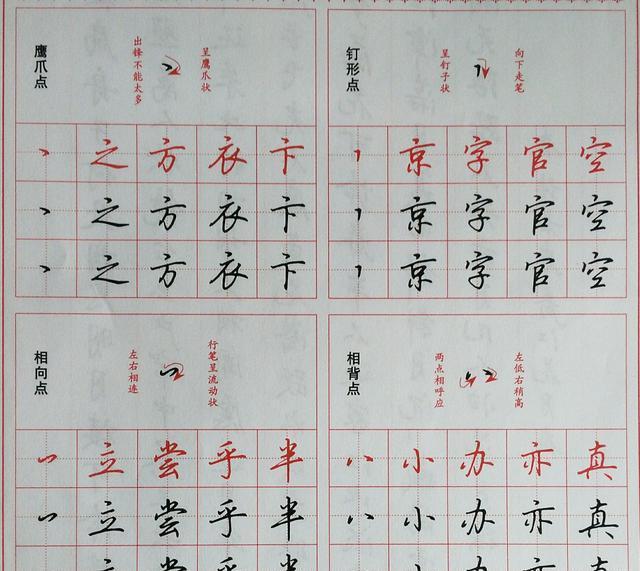 鹰爪点
出锋不能太多
呈鹰爪状
之 方 衣 卞
之 方 衣 卞
之 方 衣 卞
钉形点
呈钉子状
向下走笔
京 字 官 空
京 字 官 空
京 字 官 空
相向点
左右相连
行笔呈流动状
立 尝 乎 半
立 尝 乎 半
相背点
两点相呼应
左低右稍高
小 办 亦 真
小 办 亦 真